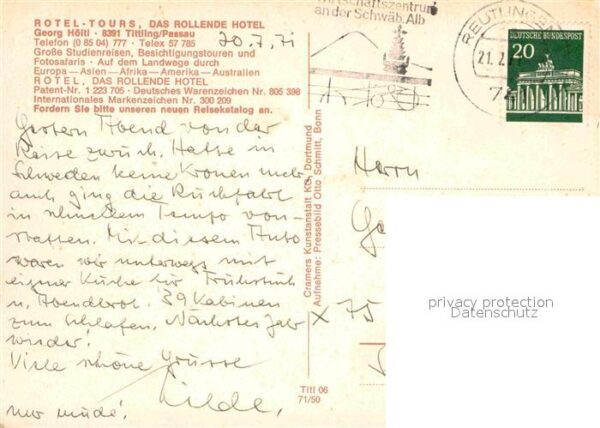 ROTEL-TOURS, DAS ROLLENDE HOTEL
Georg Höltl · 8391 Tittling/Passau
Telefon (0 85 04) 777 · Telex 57 785
Große Studienreisen, Besichtigungstouren und
Fotosafaris · Auf dem Landwege durch
Europa—Asien—Afrika—Amerika—Australien
ROTEL, DAS ROLLENDE HOTEL
Patent-Nr. 1 223 705 · Deutsches Warenzeichen Nr. 805 398
Internationales Markenzeichen Nr. 300 209
Fordern Sie bitte unseren neuen Reisekatalog an.
20.7.71
Gestern Abend von der
Reise zurück. Hatte in
Schweden keine Kronen mehr
auch ging die Rückfahrt
in schnellem Tempo von-
statten. Mit diesem Auto
waren wir unterwegs mit
eigner Küche für Frühstück
u. Abendbrot. 39 Kabinen
zum Schlafen. Nächstes Jahr
wieder.
Viele schöne Grüsse
Hilde,
nur müde!
Titl 06
71/50
Cramers Kunstanstalt KG, Dortmund
Aufnahme: Pressebild Otto Schmitt, Bonn
Wirtschaftszentrum
an der Schwäb. Alb
REUTLINGEN
21.7.
DEUTSCHE BUNDESPOST
20
Herrn
X 75
privacy protection
Datenschutz